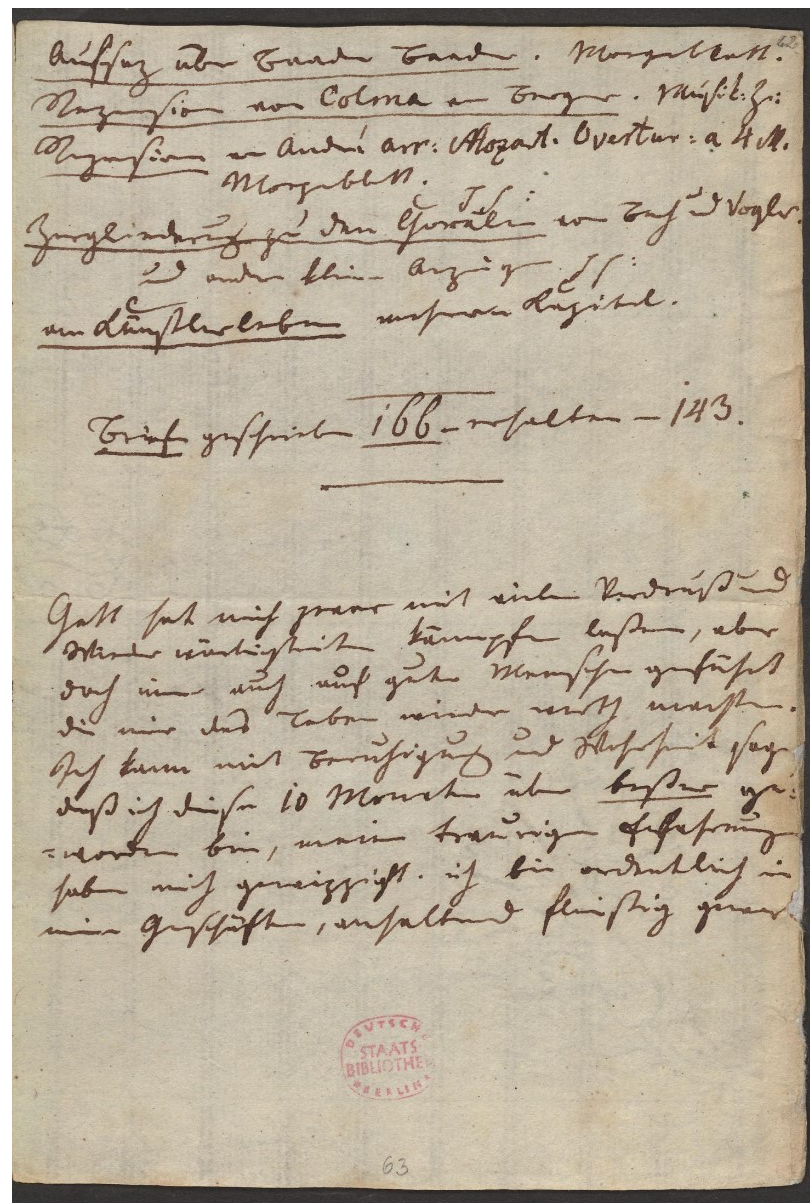 62
Aufsaz über Baaden Baaden. Morgenblatt.
Rezension von Colma von Berger. Musik: Z:
Rezension von André arr: Mozart. Overtur: a 4 M.
Morgenblatt.
Zergliederung zu den Choralen von Bach und Vogler.
und andere kleine
am Künstlerleben mehrere Kapitel.
Briefe geschrieben 166 – erhalten – 143.
Gott hat mich zwar mit vielen Verdruß und
Wiederwärtigkeiten kämpfen laßen, aber
doch immer auch auf gute Menschen geführt
die mir das Leben wieder werth machten.
Ich kann mit Beruhigung und Wahrheit sagen
daß ich diese 10 Monate über beßer ge:
=worden bin, meine traurigen Erfahrungen
haben mich gewizzigt. ich bin ordentlich in
meinen Geschäften, anhaltend fleißig gewes
DEUTSCHE
STAATS
BIBLIOTHEK
BERLIN
63